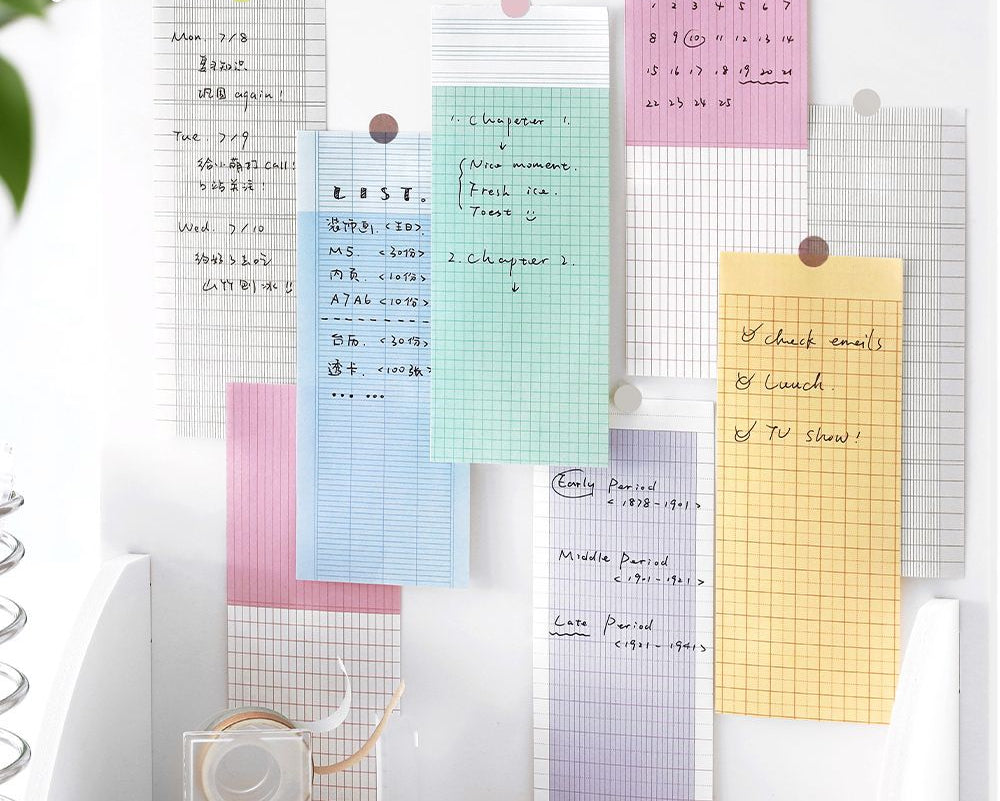 Mon. 7/8
复习知识
巩固 again!
Tue. 7/9
给小萌打 call!
B站关注!
Wed. 7/10
约好了去吃
山竹刨冰!!
LIST.
装饰画. <主日>.
M5. <30份>
内页. <10份>
A7A6 <10份>
台历. <30份>
透卡. <100张>
... ...
1. Chapeter 1.
↓
Nice moment.
Fresh ice.
Toest
2. Chapter 2.
↓
1 2 3 4 5 6 7
8 9 10 11 12 13 14
15 16 17 18 19 20 21
22 23 24 25
Early Period
<1878-1901>
Middle Period
<1901-1921>
Late Period
<1921-1941>
check emails
Lunch.
TV show!